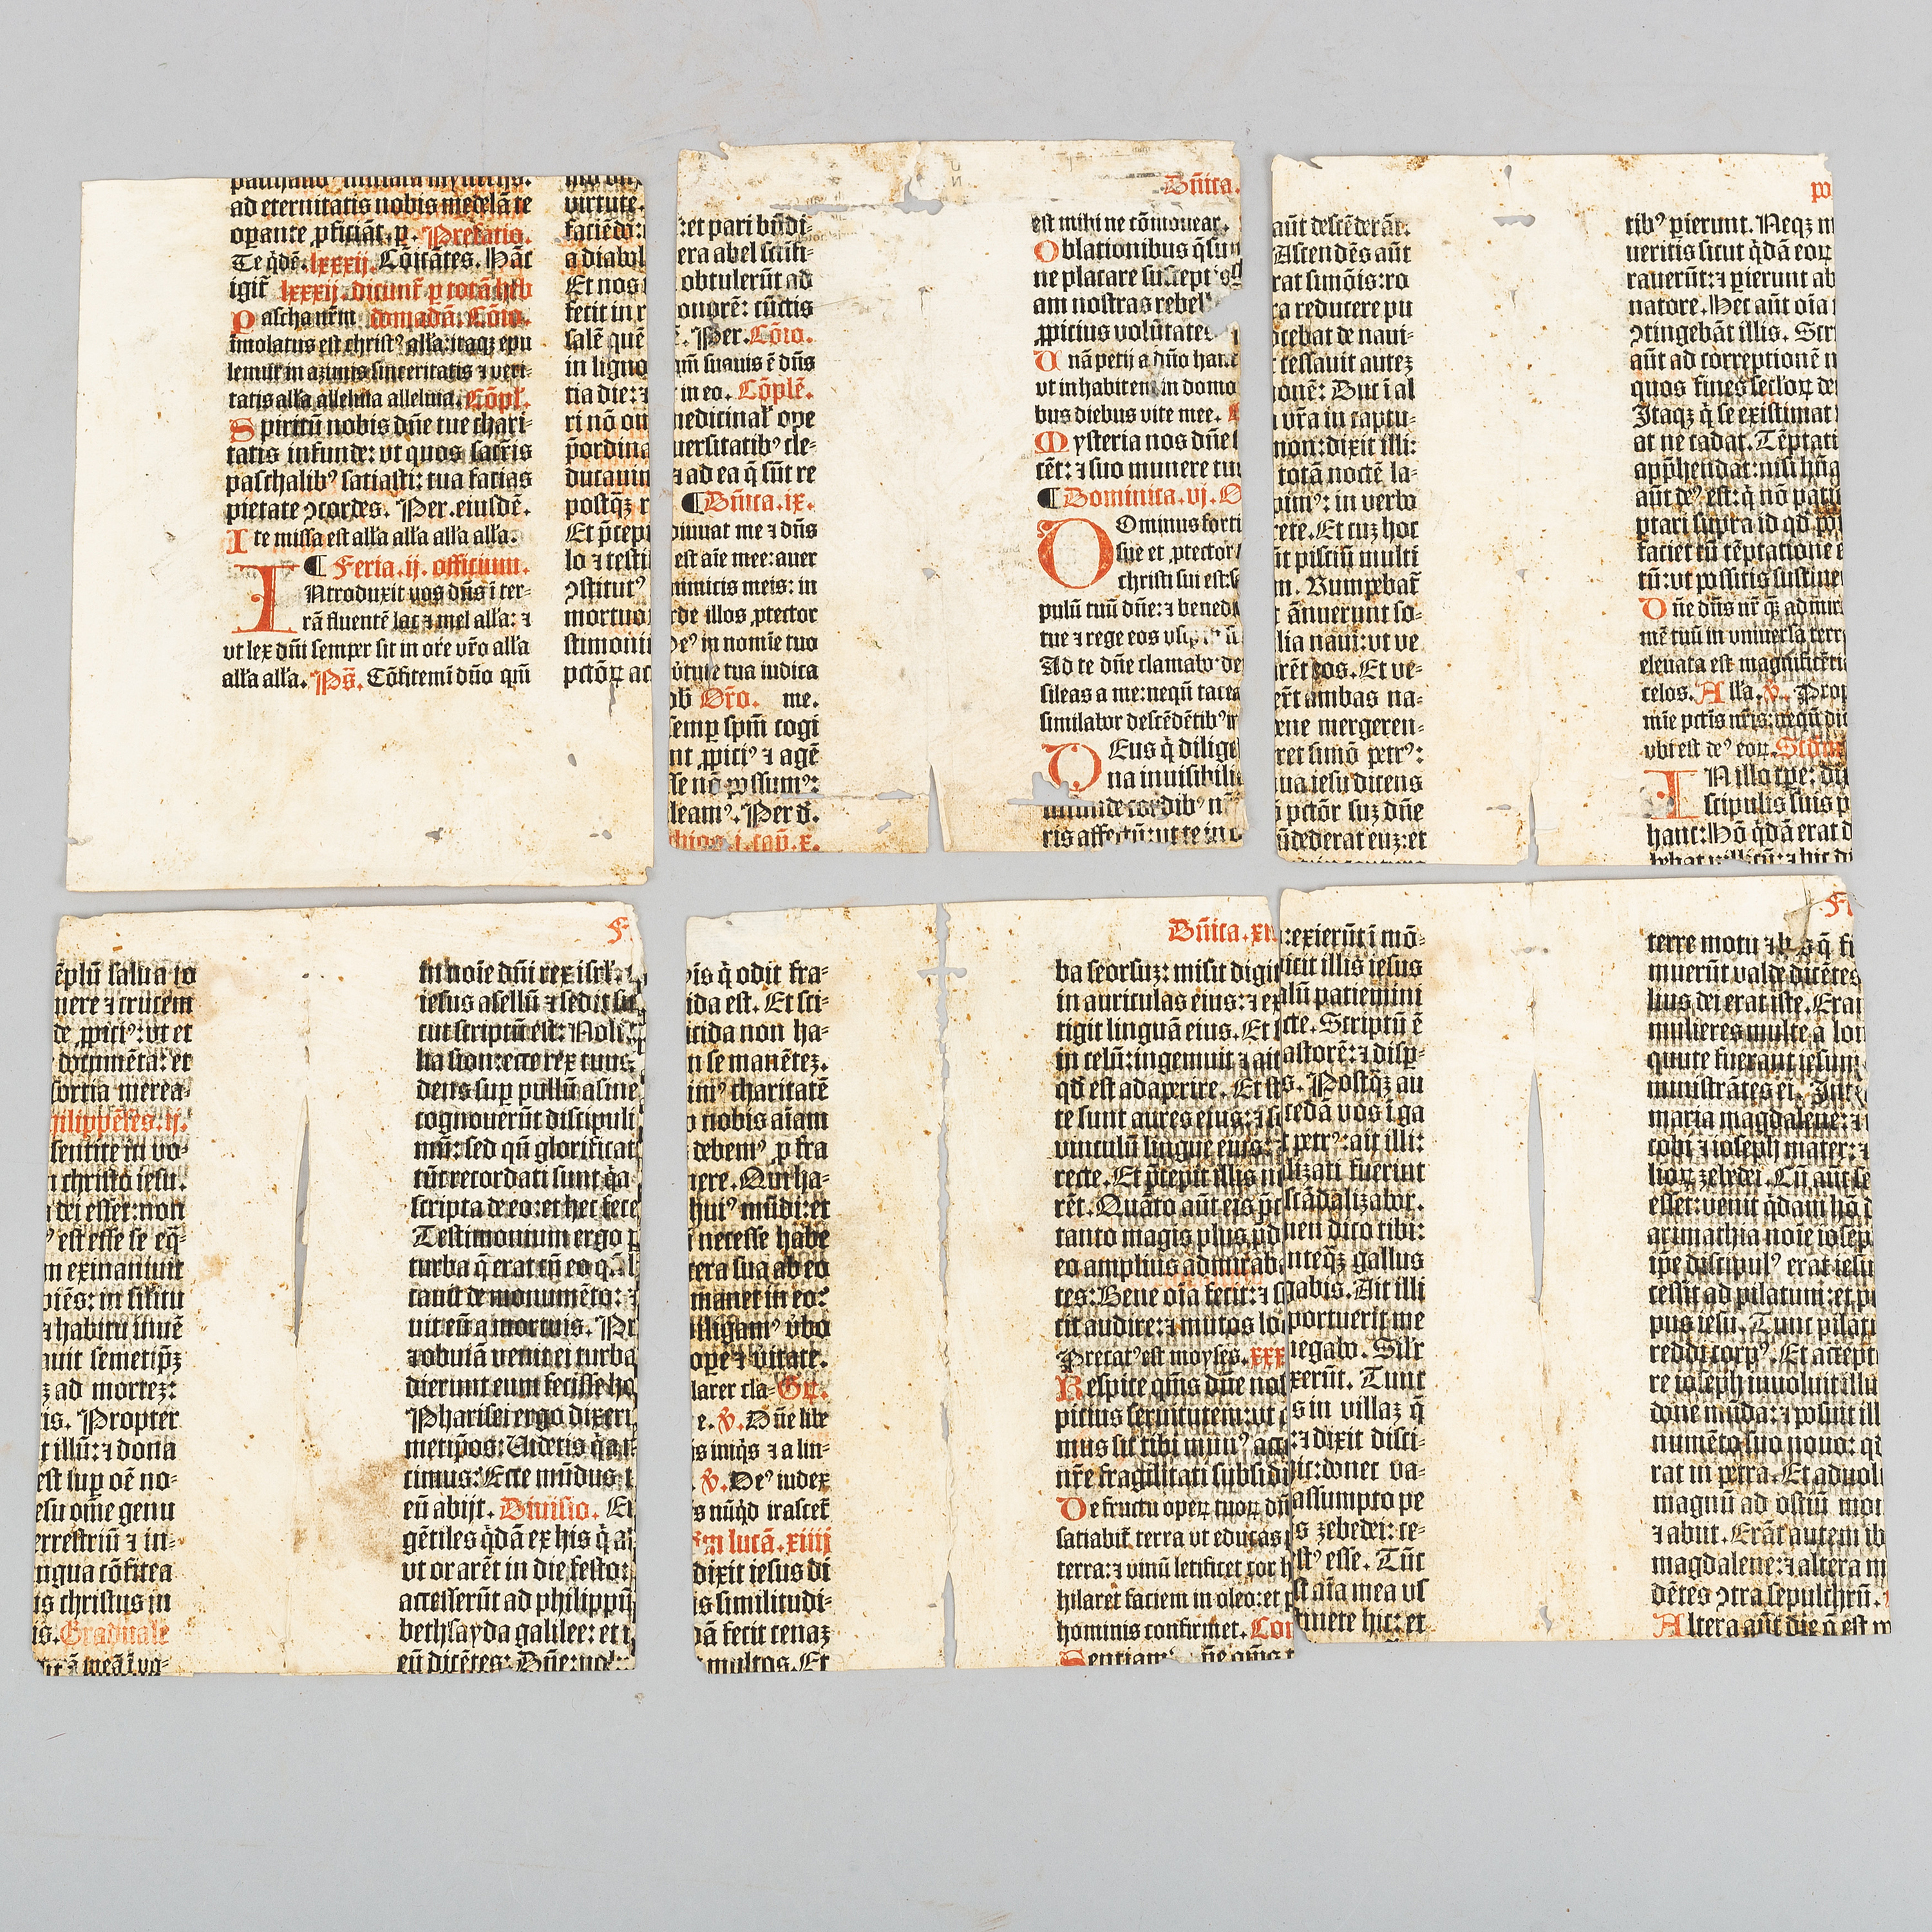 ad eternitatis nobis medelā te
opante ꝓficiāt. p. Prefatio.
Te q̇dē. lxxxij. Cōicātes. Hāc
igit᷑ lxxxij. dicunt᷑ p totā heb
Pascha nr̄m domadā. Cōio.
īmolatus est christꝰ alľa: itaqꝫ epu
lemur in azimis sinceritatis ⁊ veri-
tatis alľa alleluia alleluia. Cōpľ.
Spiritū nobis dn̄e tue chari-
tatis infunde: vt quos sacris
paschalibꝰ satiasti: tua facias
pietate ↄcordes. Per. eiusdē.
Ite missa est alľa alľa alľa alľa.
¶ Feria. ij. officium.
INtroduxit vos dn̄s ī ter-
rā fluentē lac ⁊ mel alľa: ⁊
vt lex dn̄i semper sit in ore vr̄o alľa
alľa alľa. Ps̄. Cōfitemī dn̄o qm̄
virtute.
faciēdo:
a diabol
Et nos
fecit in r
salē quē
in ligno
tia die: ⁊
ri nō om
p̄ordina
ducauim
postqꝫ r
Et p̄cep
lo ⁊ testi
ↄstitutꝰ
mortuo
stimoni
pctōꝝ ac
: et pari bn̄di-
era abel sctīfi-
obtulerūt ad
onorē: cūctis
. Per. Cōio.
qm̄ suauis ē dn̄s
in eo. Cōplē.
medicinal᷑ ope
uersitatibꝰ cle-
⁊ ad ea q̄ sūt re
¶ Dn̄ica. ix.
diuuat me ⁊ dn̄s
est aīe mee: auer
inimicis meis: in
de illos ꝓtector
eꝰ in nomīe tuo
v̓tute tua iudica
ob Or̄o. me.
semp spm̄ cogi
nt ꝓpiciꝰ ⁊ agē
se nō possumꝰ:
leamꝰ. Per d̄.
j. cap̄. x.
Dn̄ica.
est mihi ne cōmouear.
Oblationibus q̄sum
ne placare suscept
am nostras rebel
ꝓpicius volūtates
Unā petij a dn̄o hanc
vt inhabitem in domo
bus diebus vite mee.
Mysteria nos dn̄e
cēt: ⁊ suo munere tu
¶ Dominica. vj. O
DOminus forti
sue et ꝓtector
christi sui est: s
pulū tuū dn̄e: ⁊ bened
tue ⁊ rege eos vsqꝫ
Ad te dn̄e clamabo: de
sileas a me: nequn̄ tacea
similabor descēdētibꝰ in
DEus q̇ dilige
na inuisibili
cordibꝰ n
ris affectū: vt te in o
aūt descēderāt.
Ascendēs aūt
rat simōis: ro
a reducere pu
ocebat de naui-
cessauit autez
onē: Duc ī al
vr̄a in captu-
mon: dixit illi:
totā noctē la-
pimꝰ: in verbo
rete. Et cuz hoc
ūt pisciū multi
m. Rumpebat᷑
t ānuerunt so-
lia naui: vt ve
rēt eos. Et ve-
erūt ambas na-
ene mergeren-
ret simō petrꝰ:
ua iesu dicens
pctōr suz dn̄e
ūdederat euz: et
po
tibꝰ pierunt. Neqꝫ m
ueritis sicut q̇dā eoꝝ
rauerūt: ⁊ pierunt ab
natore. Hec aūt oīa
ↄtingebāt illis. Scr
aūt ad correptionē n
quos fines sec̄loꝝ de
Itaqꝫ q̇ se existimat
at ne cadat. Tēptati
app̄hendat: nisi hūa
aūt deꝰ est: q̇ nō patie
ptari supra id qd po
faciet cū tēptatione
tū: vt possitis sustine
Dn̄e dn̄s nr̄ qꝫ admira
mē tuū in vniuersa terra
eleuata est magnificētia
celos. Alľa. v̄. Prop
mīe pctīs nr̄is: nequn̄ di
vbi est deꝰ eoꝝ. Scd̄m
IN illo tpe: di
scipulis suis p
hanc: Hō q̇dā erat d
ēplū salua to
nere ⁊ crucem
de ꝓpiciꝰ: vt et
documēta: et
sortia merea-
hilippēses. ij.
sentite in vo-
christo iesu.
dei esset: non
ꝰ est esse se eq̄-
m exinaniuit
piēs: in sil̄itu
⁊ habitu inuē
auit semetipꝫ
z ad mortez:
is. Propter
t illū: ⁊ dona
est sup oē no-
esu om̄e genu
errestriū ⁊ in-
ngua cōfitea
is christus in
is. Graduale
F
in noīe dn̄i rex isrl̄.
iesus asellū ⁊ sedit su
cut scriptū est: Noli
lia sion: ecce rex tuus
dens sup pullū asine
cognouerūt discipuli
mū: sed qn̄ glorificat
tūc recordati sunt q̇a
scripta de eo: et hec fece
Testimonium ergo p
turba q̄ erat cū eo qn̄
cauit de monumēto: ⁊
uit eū a mortuis. Pr
⁊ obuiā venit ei turba
dierunt eum fecisse ho
Pharisei ergo dixeri
metipos: Uidetis q̇a
cimus: Ecce mūdus t
eū abijt. Diuisio. E
gētiles q̇dā ex his q̇ a
vt orarēt in die festo:
accesserūt ad philippū
bethsayda galilee: et
eū dicētes: Dn̄e: vol
is q̇ odit fra-
ida est. Et sci-
icida non ha-
n se manētez.
imꝰ charitatē
nobis aīam
debemꝰ ꝓ fra
ere. Qui ha-
huiꝰ mūdi: et
necesse habe
cera sua ab eo
manet in eo:
diligamꝰ v̓bo
ope ⁊ v̓itate.
larer cla- Gr̄.
e. v̄. Dn̄e libe
s iniq̄s ⁊ a lin-
v̄. Deꝰ iudex
s nūq̇d irascet᷑
m lucā. xiiij
dixit iesus di
s similitudi-
dā fecit cenaz
multos. Et
Dn̄ica. xi
ba seorsuz: misit digit
in auriculas eius: ⁊ ex
tigit linguā eius. Et
in celū: ingemuit ⁊ ait
qd est adaperire. Et st
te sunt aures eius: ⁊ s
vinculū lingue eius
recte. Et p̄cepit illis n
rēt. Quāto aūt eis p̄c
tanto magis plus pd
eo amplius admiraba
tes: Bene oīa fecit: ⁊ s
cit audire: ⁊ mutos lo
Precatꝰ est moyses. xxx
Respice qm̄s dn̄e no
picius seruitutem: vt
mus sit tibi munꝰ acc
nr̄e fragilitati subsidi
De fructu operꝫ tuoꝝ dn̄
satiabit᷑ terra vt educas
terra: ⁊ vinū letificet cor h
hilaret faciem in oleo: et p
hominis confirmet. Co
: exierūt ī mō-
icit illis iesus
alū patiemini
cte. Scriptū ē
astorē: ⁊ disp-
s. Postqꝫ au
cedā vos ī ga
petrꝰ: ait illi:
lizati fuerint
scādalizabor.
men dico tibi:
nteqꝫ gallus
gabis. Ait illi
portuerit me
negabo. Sil̄r
xerūt. Tunc
s in villaz q̄
: ⁊ dixit disci-
ic: donec va-
assumpto pe
s zebedei: ce-
stꝰ esse. Tūc
st aīa mea vs
tinete hic: et
F
terre motu
muerūt valde dicētes
lius dei erat iste. Erāt
mulieres multe a lon
quute fuerant iesum
ministrātes ei. Int
maria magdalene: ⁊
cobi ⁊ ioseph mater: ⁊
lioꝝ zebedei. Cū aūt se
esset: venit q̇dam hō
arimathia noīe iosep
ipe discipulꝰ erat iesu
cessit ad pilatum: et p
pus iesu. Tunc pilat
reddi corpꝰ. Et accept
re ioseph inuoluit illu
done mūda: ⁊ posuit ill
numēto suo nouo: q
rat in petra. Et aduol
magnū ad ostiū mo
⁊ abijt. Erāt autem ib
magdalene: ⁊ altera m
dētes ↄtra sepulchrū.
Altera aūt die q̄ est